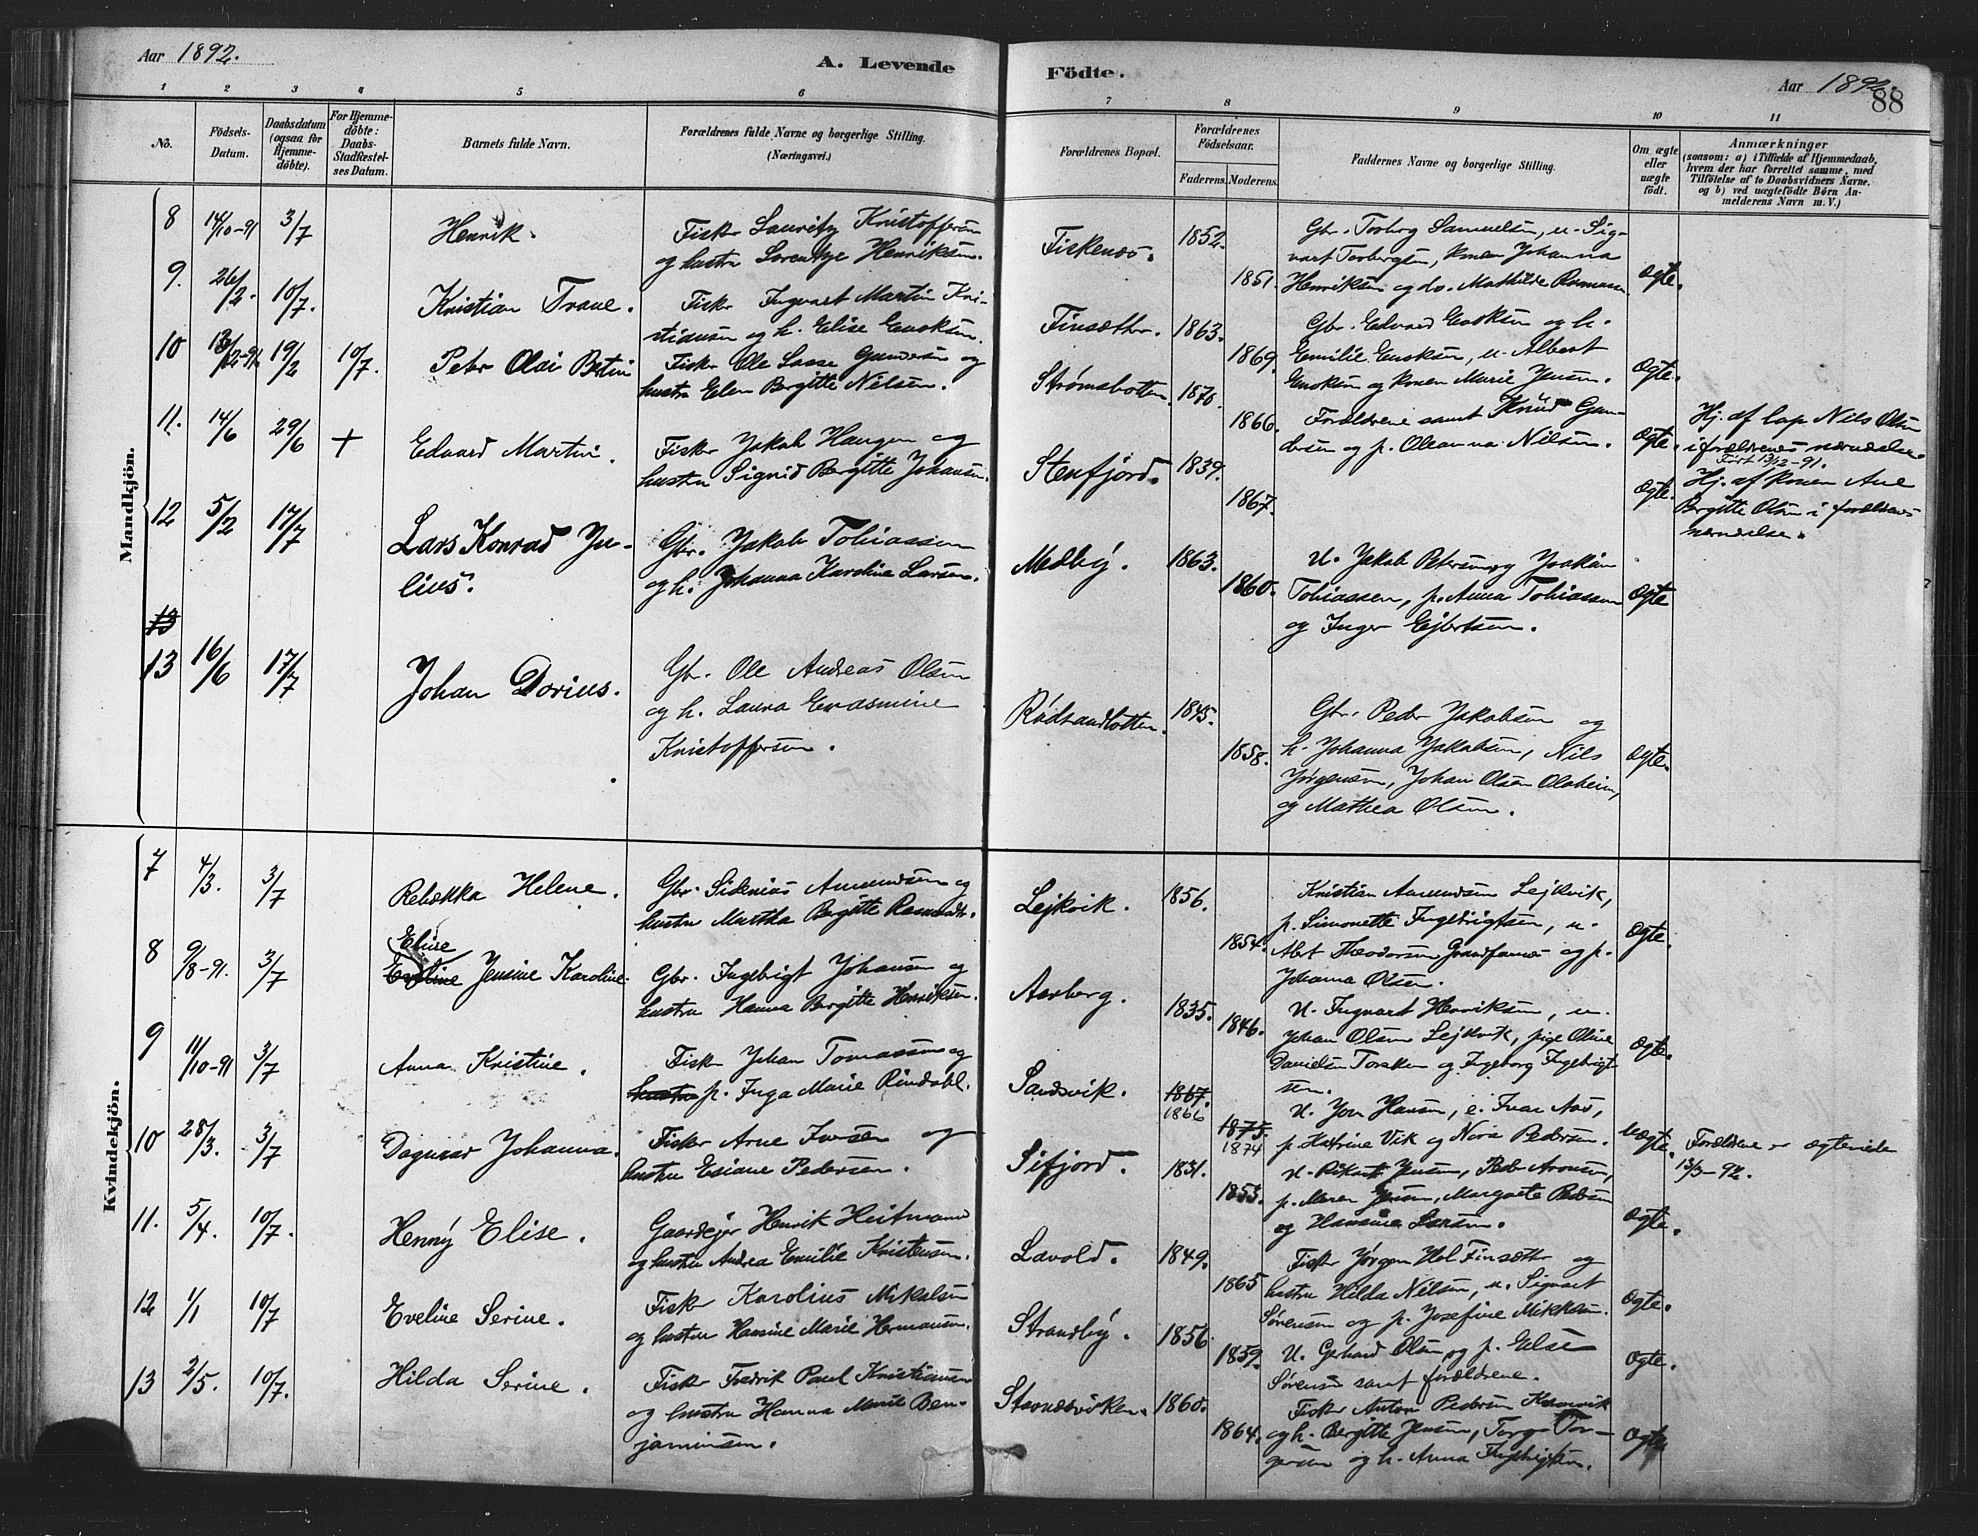 Aar 1892.
A. Levende Födte.
Aar 1892.
88
1 2 3 4 5 6 7 8 9 10 11
No.
Födsels-Datum.
Daabsdatum (ogsaa for Hjemme-döbte).
For Hjemme-döbte: Daabs-Stadfæstel-ses Datum.
Barnets fulde Navn.
Forældrenes fulde Navne og borgerlige Stilling. (Næringsvei.)
Forældrenes Bopæl.
Forældrenes Födselsaar.
Faderens. Moderens.
Faddernes Navne og borgerlige Stilling.
Om ægte eller uægte födt.
Anmærkninger
(saasom: a) i Tilfælde af Hjemmedaab, hvem der har forrettet samme, med Tilföielse af to Daabsvidners Navne. og b) ved uægtefödte Börn An-melderens Navn m. V.)
Mandkjön.
8 14/10-91 3/7 Henrik. Fisker Lauritz Kristoffersen
og hustru Lorentze Henriksen. Fiskenæs. 1852. 1851.
Gbr. Torberg Samuelsen, u. Sig-
vart Torbergsen, konen Johanna
Henriksen og do. Mathilde Rasmussen Ægte.
9. 26/2. 10/7. Kristian Trane. Fisker Ingvart Martin Kri-
stiansen og h. Elise Enoksen. Finsæther. 1863. 1869.
Gbr. Edvard Enoksen og h.
Emilie Enoksen, u. Albert
Enoksen og konen Marie Jensen. Ægte.
10 13/12-91 19/2 10/7. Peder Olai Bertin Fisker Ole Lasse Gundersen og
hustru Elen Birgitte Nilsen. Strømsbotten. 1870. 1866.
Forældrene samt Knud Gun-
dersen og p. Olianna Nilsen. Ægte.
Hj. af lap Nils Olsen
i forældrenes nærværelse.
Ført 13/12-91.
11. 14/6 29/6 + Edvard Martin. Fisker Jakob Haugen og
hustru Sigrid Birgitte Johansen. Stenfjord. 1839. 1867. Ægte.
Hj. af konen Ane
Birgitte Olsen i forældrenes
nærværelse.
12 5/2 17/7 Lars Konrad Ju-
lius. Gbr. Jakob Tobiassen
og h. Johanna Karoline Larsen. Medby. 1863. 1860.
U. Jakob Petersen og Joakim
Tobiassen, p. Anna Tobiassen
og Inger Ejbertsen. Ægte
13
13 16/6 17/7 Johan Dorius. Gbr. Ole Andreas Olsen
og h. Laura Erasmine
Kristoffersen. Rødsandbotten. 1845. 1858.
Gbr. Peder Jakobsen og
h. Johanna Jakobsen, Nils
Jørgensen, Johan Olsen Olaheim,
og Mathea Olsen. Ægte.
Kvindekjön.
7 4/3. 3/7 Rebækka Helene. Gbr. Sidenius Amundsen og
hustru Martha Birgitte Rasmusdtr. Lejkvik. 1856. 1854.
Kristian Amundsen Lejkvik,
p. Simonette Ingebrigtsen, u.
Albert Theodorsen Grundfarnes og p.
Johanna Olsen. Ægte.
8 9/8-91. 3/7 Eline
Eveline Jensine Karoline. Gbr. Ingebrigt Johansen og
hustru Hanna Birgitte Henriksen. Aarberg. 1835. 1846.
U. Ingvart Henriksen, u.
Johan Olsen Lejkvik, pige Oline
Danielsen Torsken og Ingeborg Ingebrigt-
sen. Ægte.
9 11/10-91 3/7 Anna Kristine. Fisker Johan Tomassen og
hustru p. Inga Marie Rindahl. Sandsvik. 1867. 1866 1875. 1874
U. Jon Hansen, e. Ivar Aas,
p. Katrine Vik og Nora Pedersen. Uægte.
Forældrene er ægteviede
13/3-92.
10 28/3. 3/7 Dagmar Johanna. Fisker Arne Iversen og
hustru Esiane Pedersen. Sifjord. 1831. 1853.
U. Rikart Jensen, Peder Aronsen,
p. Maren Jensen, Margrete Pedersen
og Hansine Larsen. Ægte.
11. 5/4 10/7. Henny Elise. Gaardejer Henrik Heitmann
og hustru Andrea Emilie Kristensen. Lavold. 1849. 1865
Fisker Jørgen Hol Finsæther og
hustru Hilda Nilsen, u. Sigvart
Sørensen og p. Josefine Mikkelsen. Ægte.
12 1/1 10/7 Eveline Serine. Fisker Karolius Mikalsen
og hustru Hansine Marie Hermansen. Strandby. 1856 1859.
U. Gerhard Olsen og p. Else
Sørensen samt forældrene. Ægte.
13 2/5. 10/7. Hilda Serine. Fisker Fredrik Paul Kristiansen
og hustru Hanna Marie Ben-
jaminsen. Stavnesvirken. 1860. 1864.
Fisker Anton Pedersen Kaarvik
og h. Birgitte Jensen, Torger Tor-
gersen og h. Anna Ingebrigtsen. Ægte